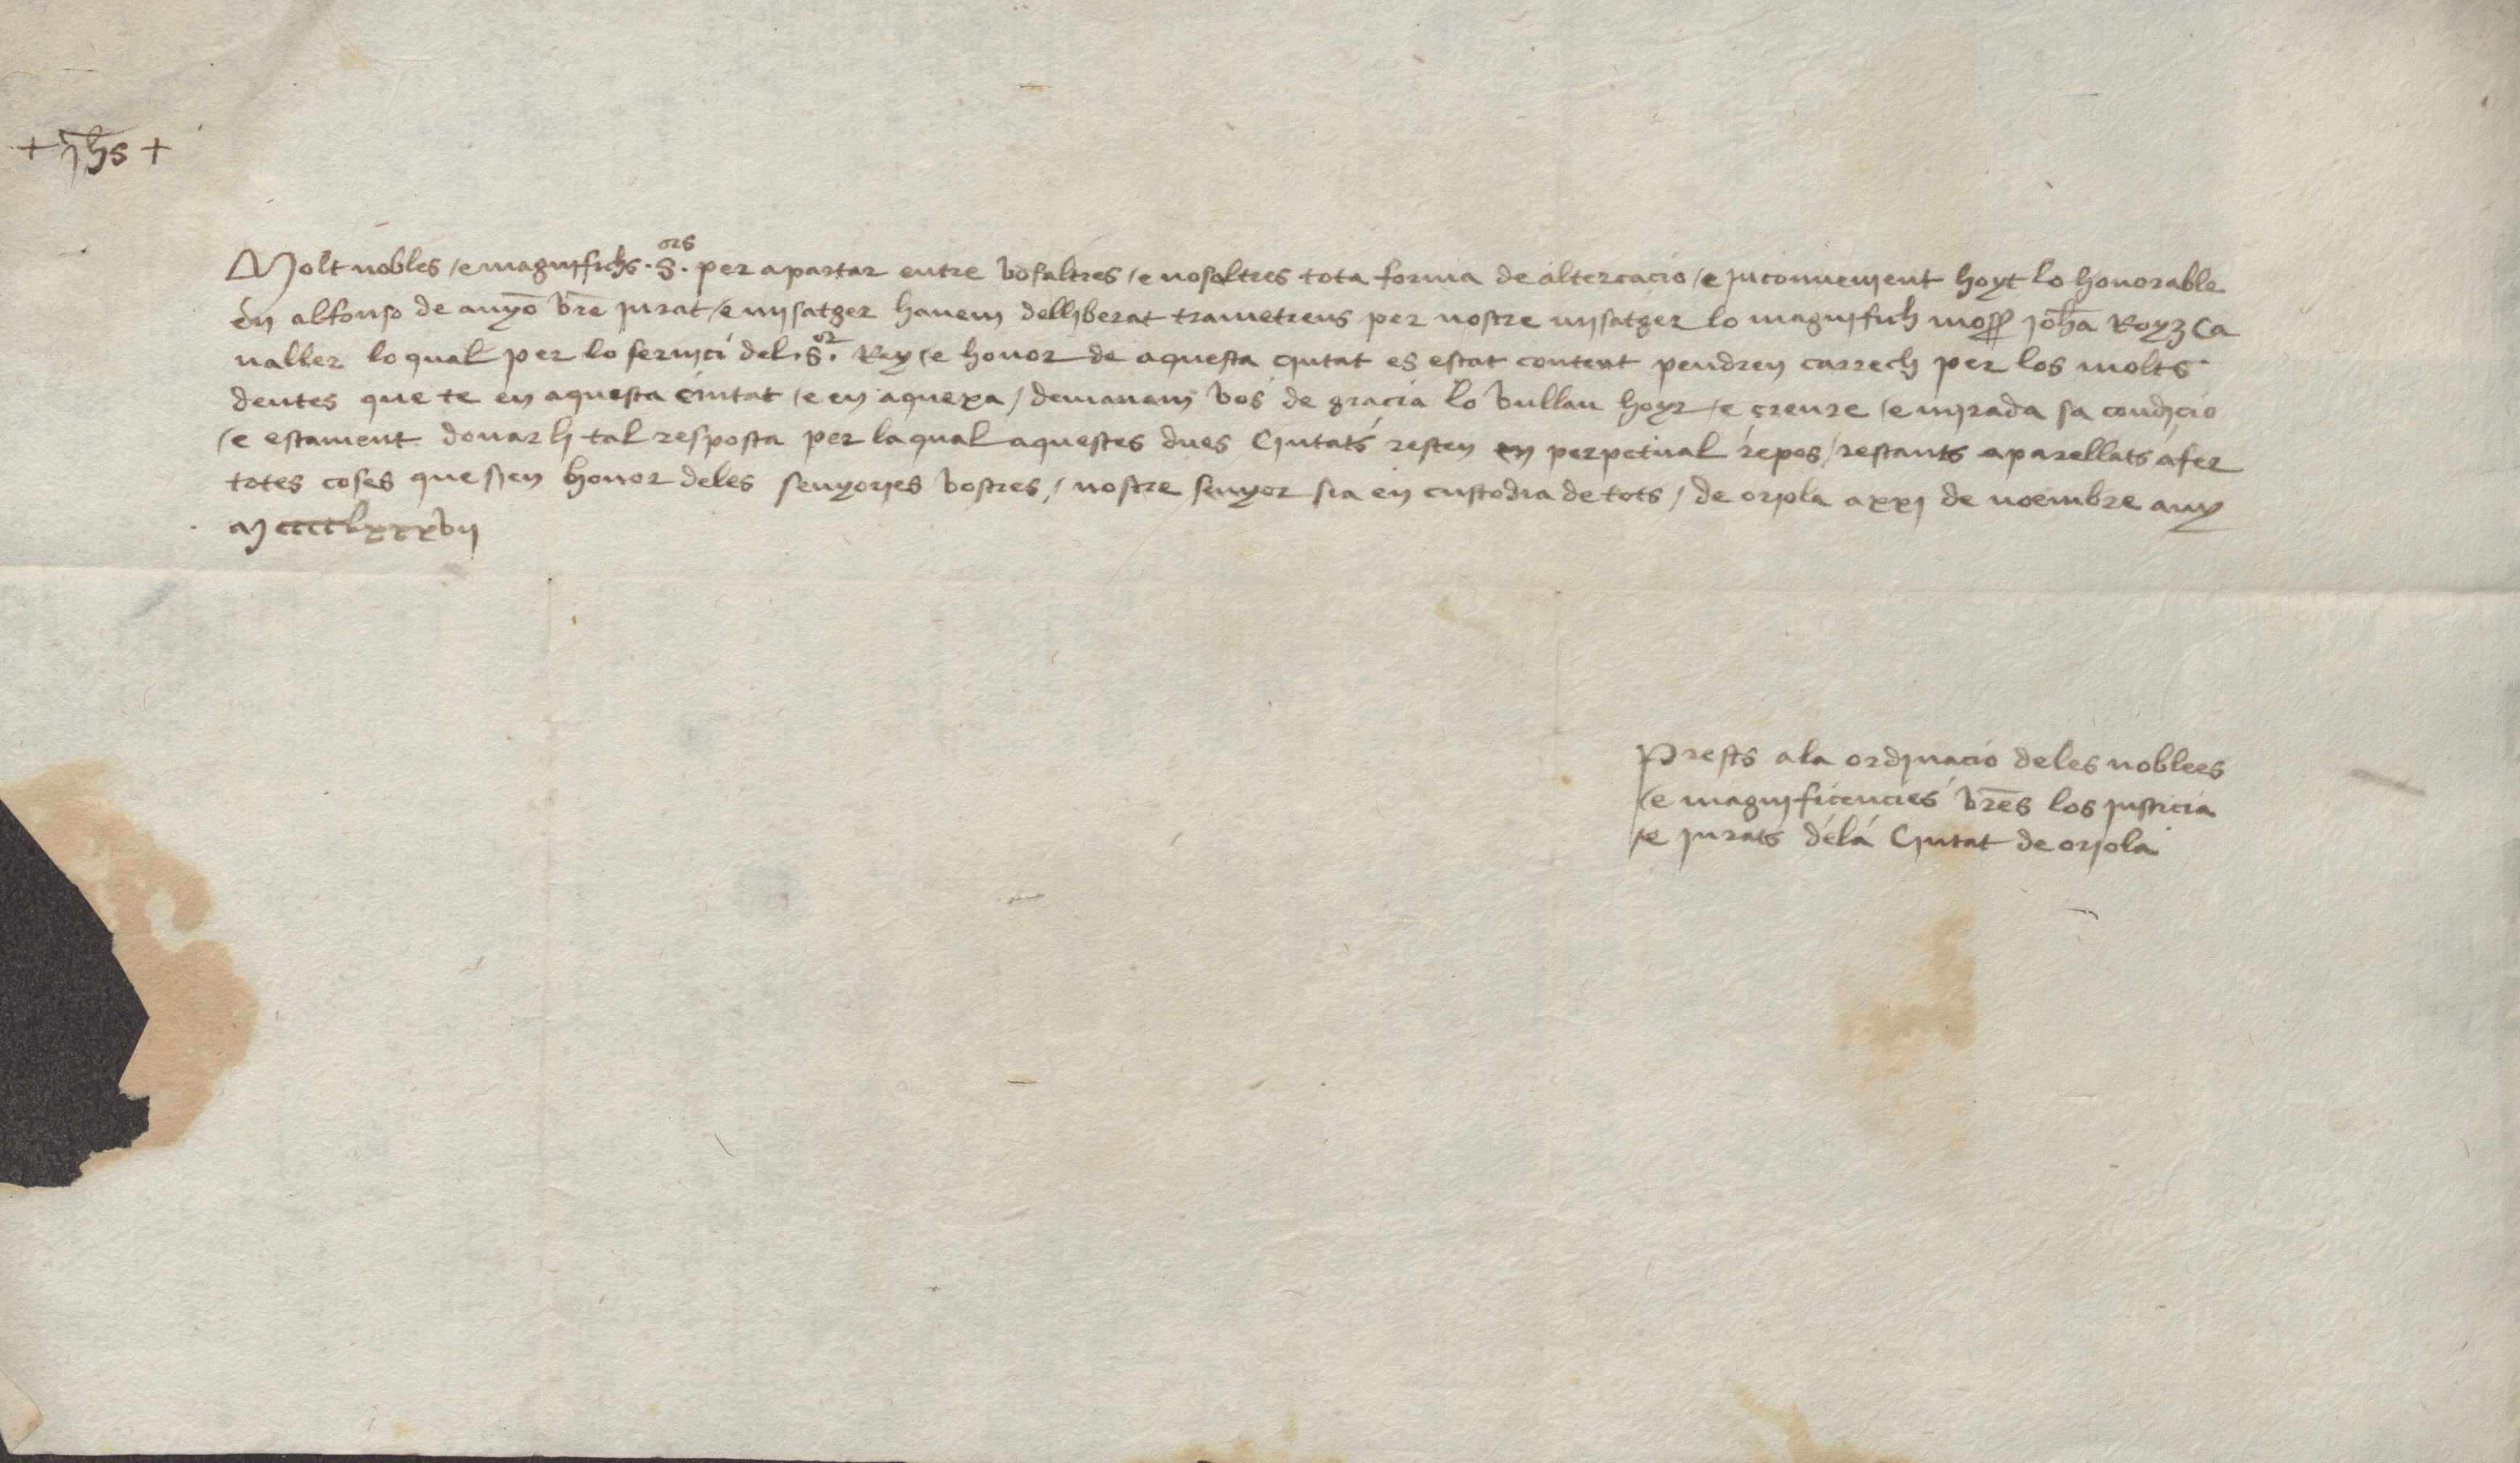 + yhs +
Molt nobles /e magnifichs .S.ors per apartar entre vosaltres /e nosaltres tota forma de altercacio /e jnconuenjent hoyt lo honorable
en alfonso de anyo vre jurat /e mjsatger hauem dellyberat trametreus per nostre mjsatger lo magnifich moss joha Royz Ca
ualler lo qual per lo seruici del .S.or Rey /e honor de aquesta ciutat es estat content pendren carrech per los molts
deutes que te en aquesta ciutat /e en aquexa / demanam vos de gracia lo vullau hoyr /e creure /e mjrada sa condicio
/e estament donar li tal resposta per laqual aquestes dues Ciutats resten en perpetual repos / restants aparellats afer
totes coses que sien honor deles senyories vostres / nostre senyor sia en custodia de tots / de oriola a xxj de noembre any
Mcccclxxxvij
Prests ala ordinacio deles noblees
/e magnificencies vres los justicia
/e jurats dela Ciutat de oriola